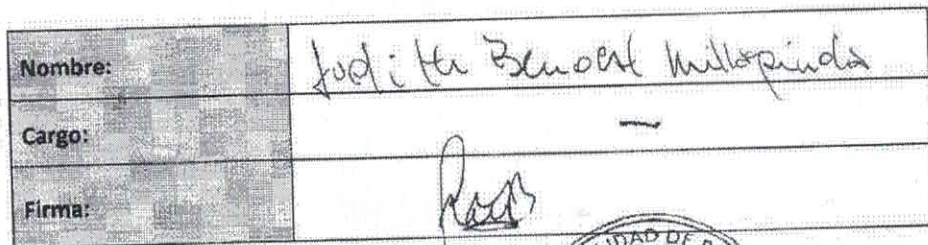 Nombre: Judith Benoit Millapinda
Cargo: —
Firma:
IDAD DE